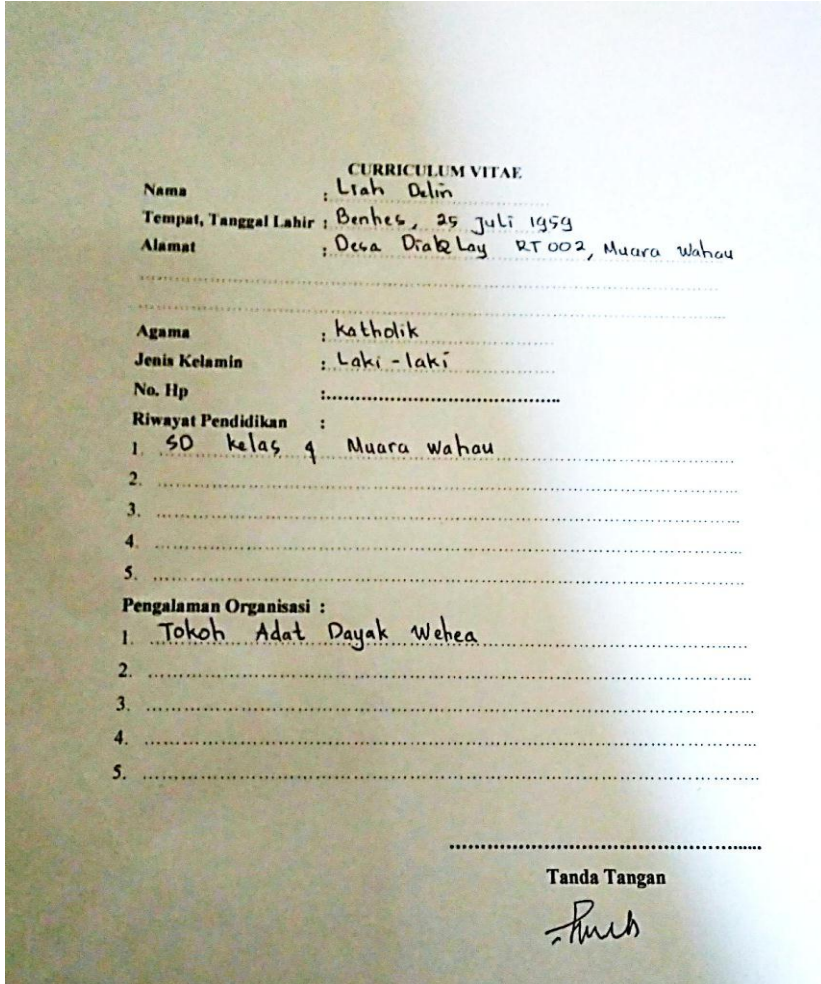 CURRICULUM VITAE
Nama : Liah Delin
Tempat, Tanggal Lahir : Benhes, 25 Juli 1959
Alamat : Desa Diak Lay RT 002, Muara Wahau
Agama : Katholik
Jenis Kelamin : Laki-laki
No. Hp :
Riwayat Pendidikan :
1. SD kelas 4 Muara Wahau
2.
3.
4.
5.
Pengalaman Organisasi :
1. Tokoh Adat Dayak Wehea
2.
3.
4.
5.
Tanda Tangan